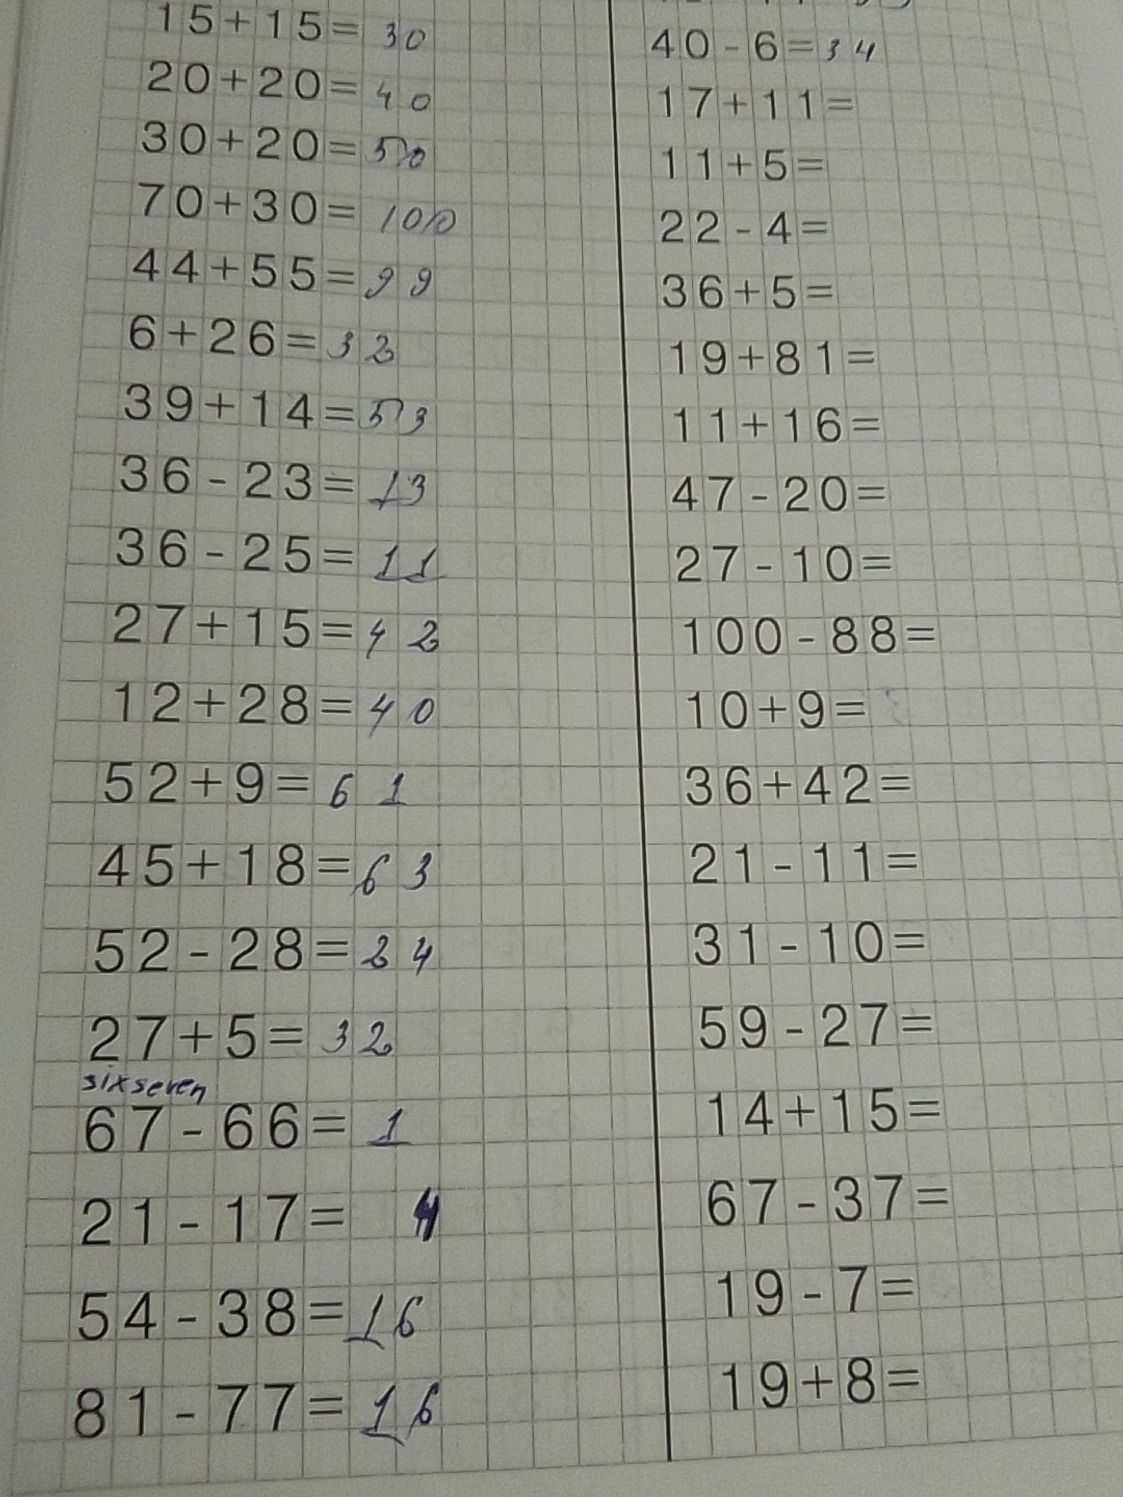 15+15=30
20+20=40
30+20=50
70+30=100
44+55=99
6+26=32
39+14=53
36-23=13
36-25=11
27+15=42
12+28=40
52+9=61
45+18=63
52-28=24
27+5=32
sixseven
67-66=1
21-17=4
54-38=16
81-77=16
40-6=34
17+11=
11+5=
22-4=
36+5=
19+81=
11+16=
47-20=
27-10=
100-88=
10+9=
36+42=
21-11=
31-10=
59-27=
14+15=
67-37=
19-7=
19+8=